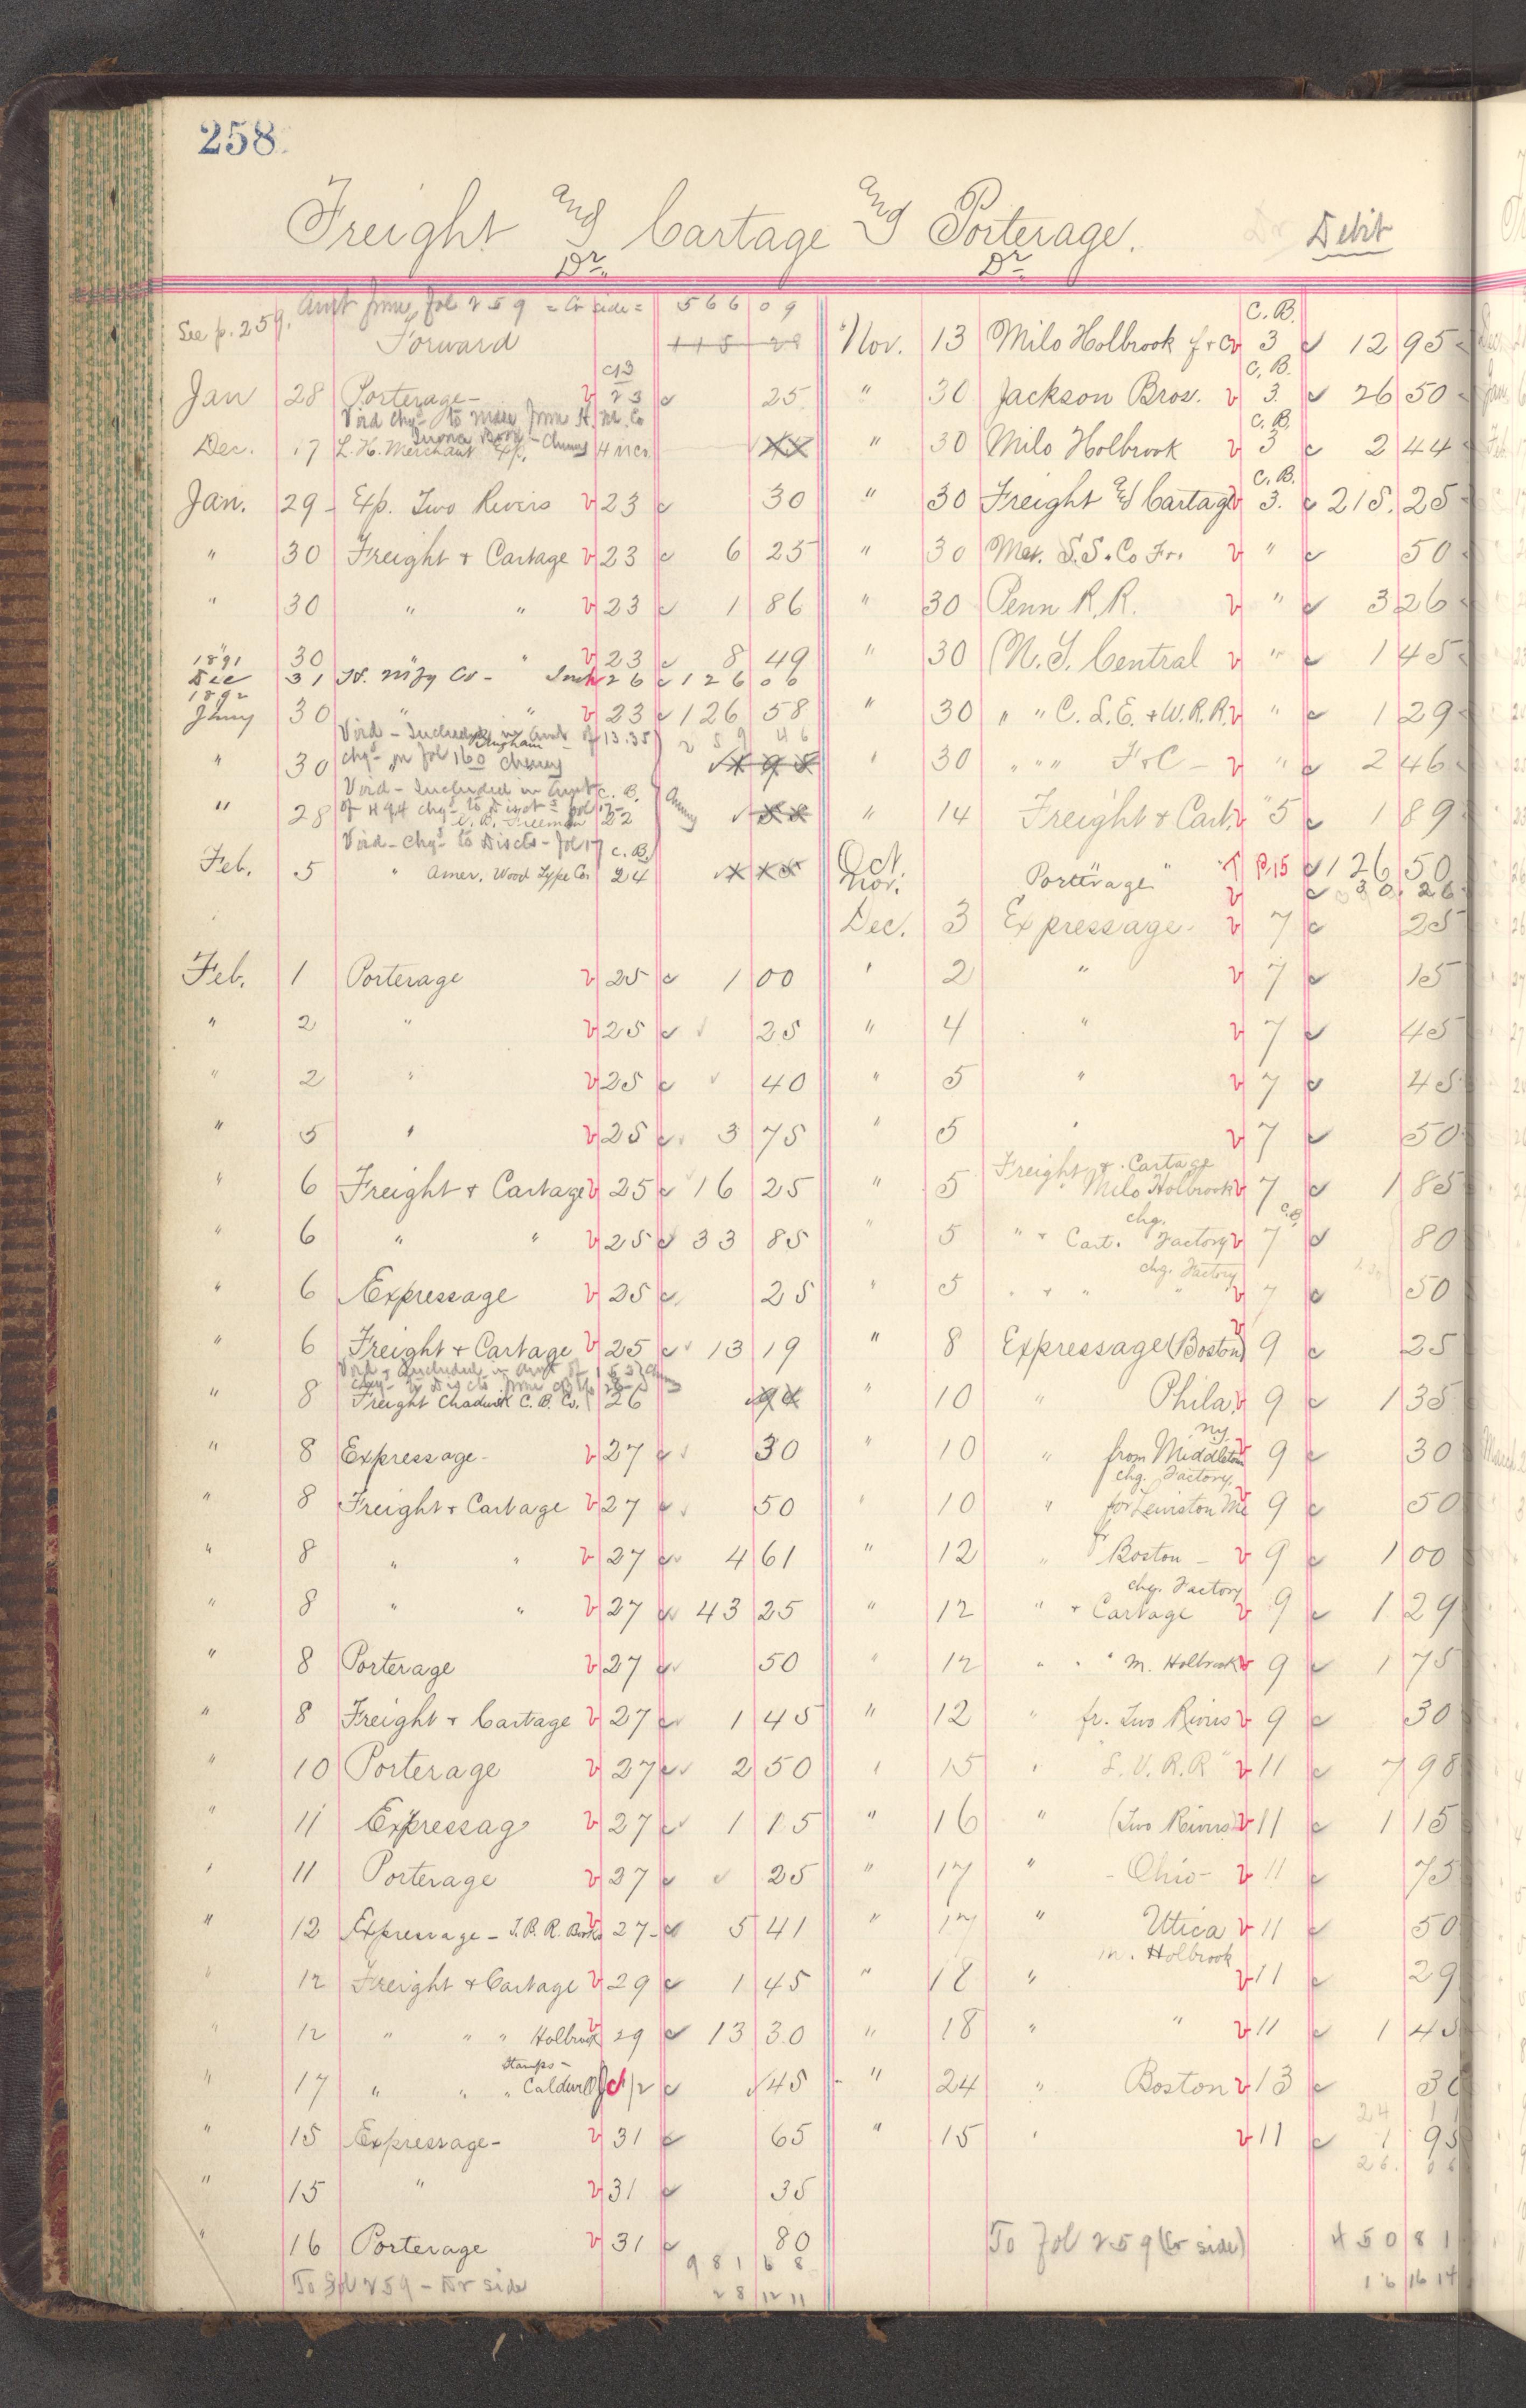 258
Freight and Cartage and Porterage.
Debit
Dr. Dr.
See p. 259. Amt from fol 259 = Cr side = 566 09
Forward 115 28
Jan 28 Porterage - 23 25
Void chgd to Mdse from H. M. Co
Dec. 17 L. H. Merchant Exp.
Jan. 29 - Exp. Two Rivers v 23 30
" 30 Freight + Cartage v 23 6 25
" 30 " " v 23 1 86
" 30 " " v 23 8 49
1891
Dec 31 H. Mfg Co - 26 126 06
1892
Jany 30 " " v 23 126 58
Void - Included in amt of 13.35
259 46
" 30 chgd on fol 160
Void - Included in Amt C. B.
" 28 of 494 chgd to Discts fol 17 22
Void - chgd to Discts - fol 17 C. B.
Feb. 5 " Amer. Wood Type Co. 24
Feb. 1 Porterage v 25 1 00
" 2 " v 25 25
" 2 " v 25 40
" 5 " v 25 3 75
" 6 Freight + Cartage v 25 16 25
" 6 " " v 25 33 85
" 6 Expressage v 25 25
" 6 Freight + Cartage v 25 13 19
Void - Included in amt of
" 8 Freight Chadwick C. B. Co. 26
" 8 Expressage - v 27 30
" 8 Freight + Cartage v 27 50
" 8 " " v 27 4 61
" 8 " " v 27 43 25
" 8 Porterage v 27 50
" 8 Freight + Cartage v 27 1 45
" 10 Porterage v 27 2 50
" 11 Expressag v 27 1 15
" 11 Porterage v 27 25
" 12 Expressage - T. B. R. Books v 27 - 5 41
" 12 Freight + Cartage v 29 1 45
" 12 " " " Holbrook v 29 13 30
Stamps -
" 17 " " " Caldwell 12 45
" 15 Expressage - v 31 65
" 15 " v 31 35
" 16 Porterage v 31 80
981 68
To Fol 259 - Dr side 28 12 11
C. B.
Nov. 13 Milo Holbrook f + C v 3 12 95
C. B.
" 30 Jackson Bros. v 3. 26 50
C. B.
" 30 Milo Holbrook v 3 2 44
C. B.
" 30 Freight and Cartage v 3. 215. 25
" 30 Met. S.S. Co Fr. v " 50
" 30 Penn R.R. v " 3 26
" 30 N.Y. Central v " 1 45
" 30 " " C. L. E. + W. R.R. v " 1 29
" 30 " " " F + C - v " 2 46
" 14 Freight + Cart. v " 5 1 89
Oct " " P. 15 126 50
Nov. Porterage v 30. 26
Dec. 3 Expressage - v 7 25
" 2 " v 7 15
" 4 " v 7 45
" 5 " v 7 45
" 5 " v 7 50
Freight + Cartage
" 5 " Milo Holbrook v 7 1 85
chg. C.B.
" 5 " + Cart. Factory v 7 80
chg. Factory
" 5 " + " " v 7 50
" 8 Expressage (Boston) v 9 25
" 10 " Phila. v 9 1 35
N.Y.
" 10 " from Middleton v 9 30
chg. Factory,
" 10 " for Lewiston Me v 9 50
" 12 " fr Boston - v 9 1 00
chg. Factory
" 12 " + Cartage v 9 1 29
" 12 " " " M. Holbrook v 9 1 75
" 12 " fr. Two Rivers v 9 30
" 15 " "L. V. R. R" v 11 7 98
" 16 " (Two Rivers) v 11 1 15
" 17 " - Ohio - v 11 75
" 17 " Utica v 11 50
M. Holbrook
" 18 " v 11 29
" 18 " " v 11 1 45
" 24 " Boston v 13
24 11
" 15 " v 11 1 95
26. 06
To Fol 259 (Cr side) 450 81
16 16 14